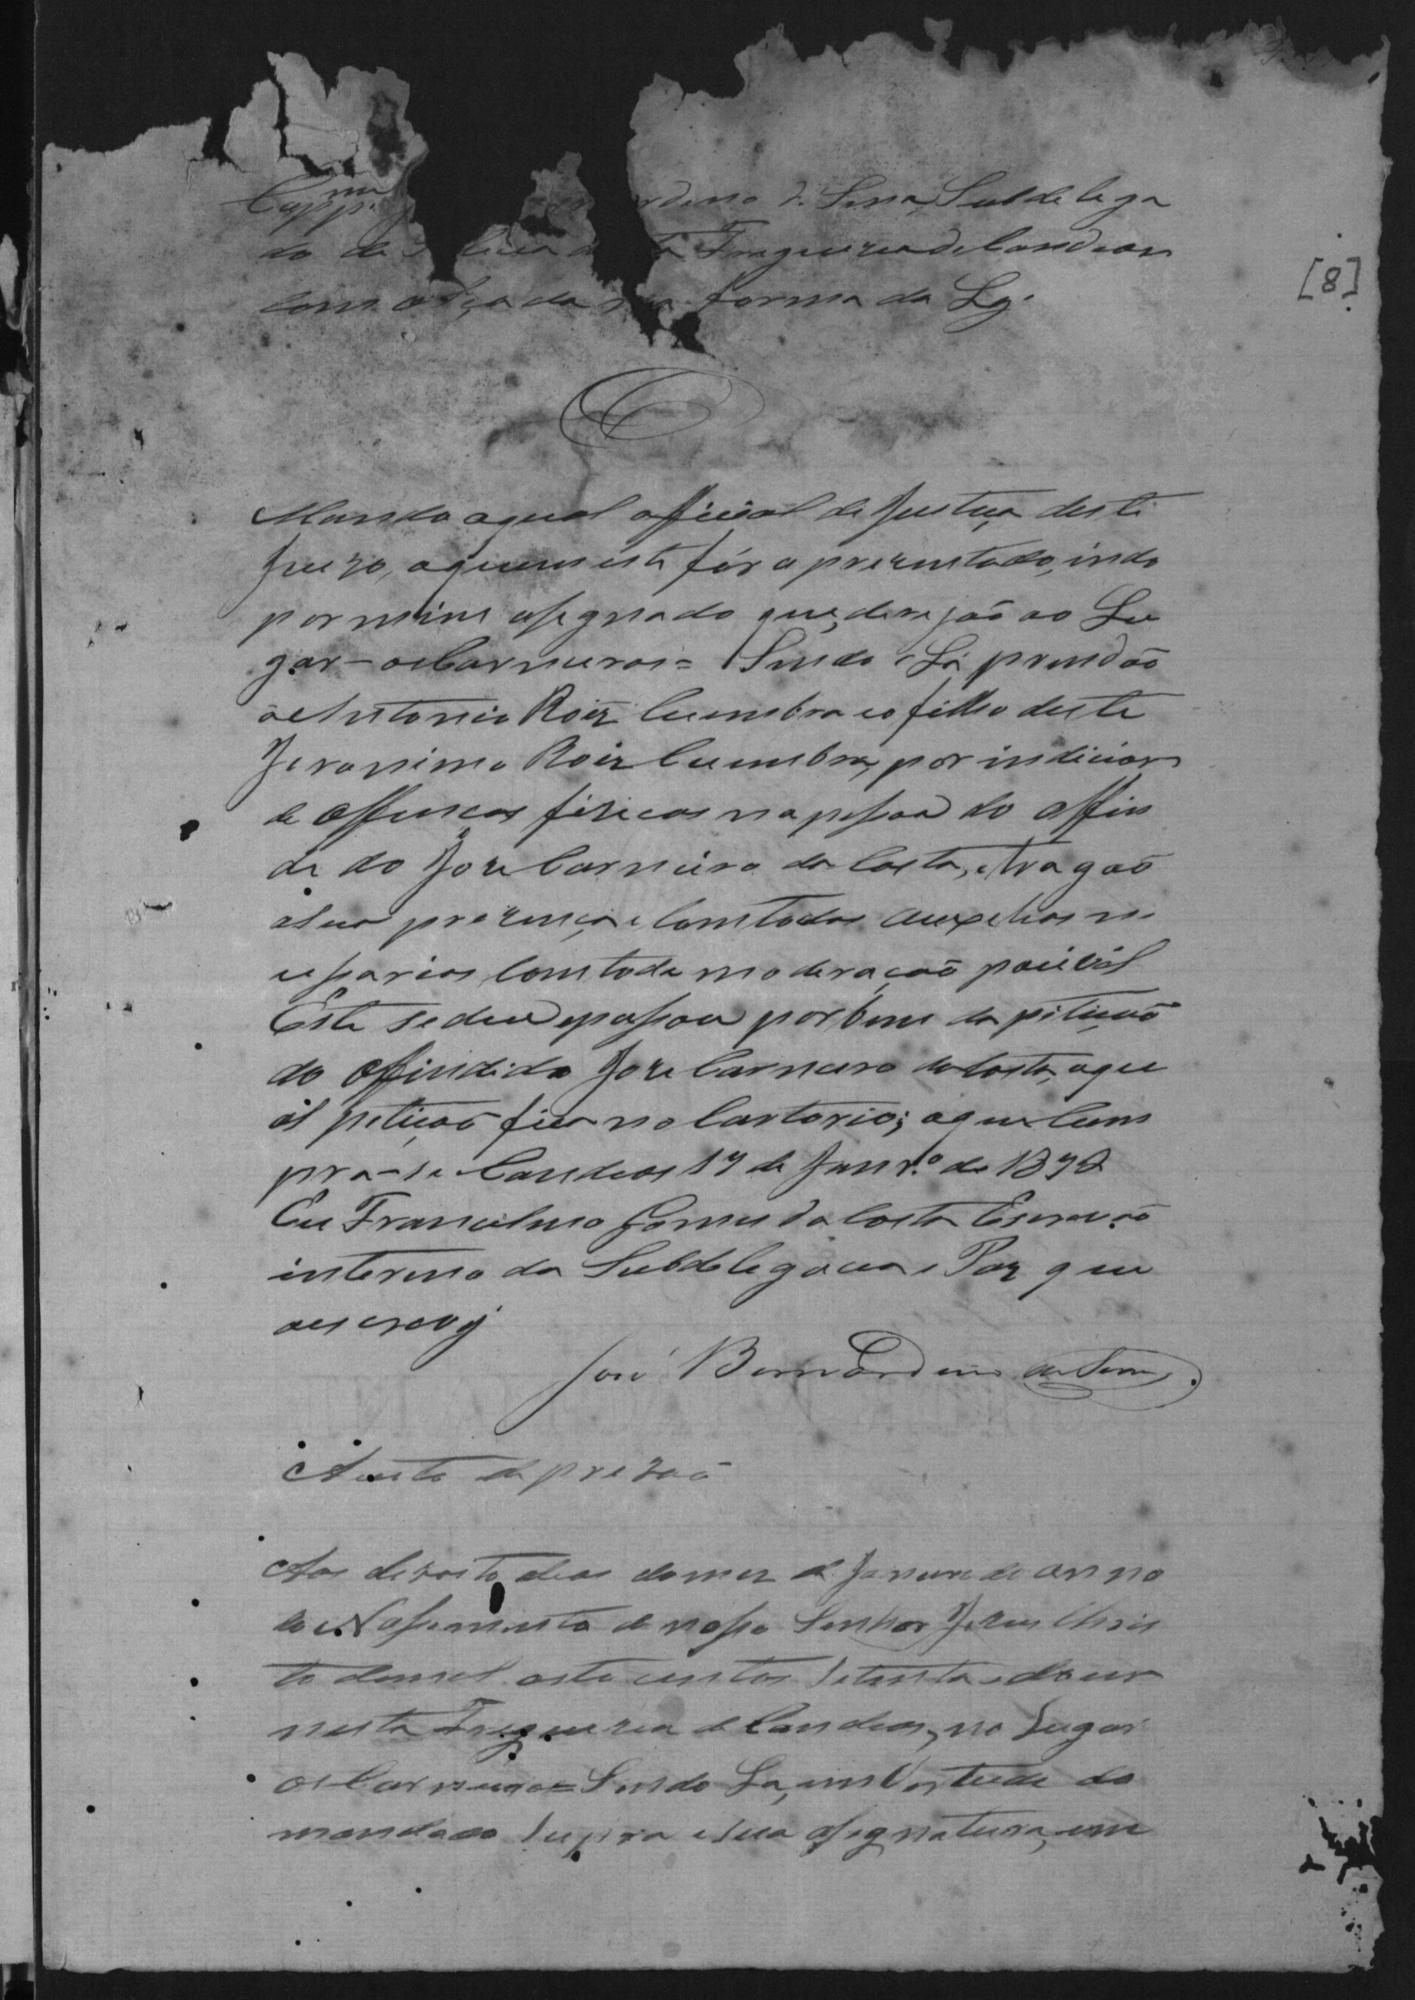 Cappm. rdino de Sena, Subdelega
do de licia d ta Freguezia de Candeas
com alçada na forma da Ley.
[8]
Mando aqual official de Justiça deste
Juizo, aquem este fór aprezentado, indo
por mim asegnado que, derejão ao Lu
gar = os Carneiros = Sendo Lá prendão
a Antonio Roiz Cuimbra eo filho deste
Jeronimo Roiz Cuimbra, por indicios
de offencas fizicas na pessoa do offin
dido Joze Carneiro da Costa, e tragão
a sua prezença e Com todos auxilios ne
cessarios, Com toda moderação pocivel
Este se deu epassou por bem da pitição
do offindido Joze Carneiro da Costa, aqu
al petição fica no Cartorio; aque Cum
pra-se Candeas 17 de Janr.º de 1872
Eu Francilino Gomes da Costa Escrivão
interino da Subdelegacia e Paz que
oescrevy
José Bernardino de Sena
Auto de prezão
Aos dezoito dias do mez de Janeiro do anno
do Nassimento de nosso Senhor Jezus Chris
to de mil oito centos Setenta e dois
nesta Freguezia de Candeas, no Lugar
os Carneiros = Sendo La, em Vertude do
mandado Supra e sua asegnatura, em